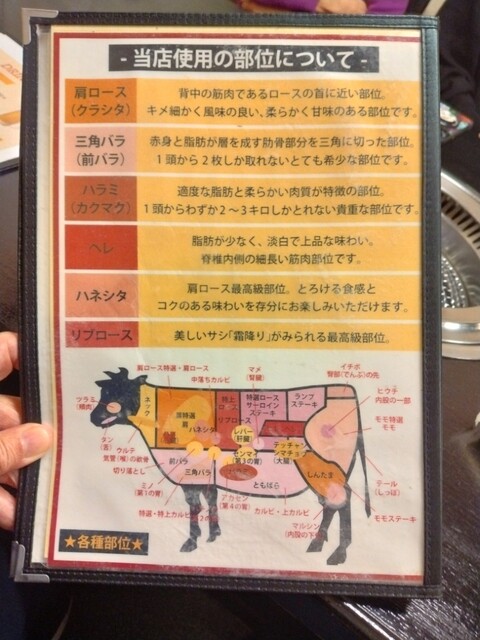 - 当店使用の部位について -
肩ロース
(クラシタ)
背中の筋肉であるロースの首に近い部位。
キメ細かく風味の良い、柔らかく甘味のある部位です。
三角バラ
(前バラ)
赤身と脂肪が層を成す肋骨部分を三角に切った部位。
1頭から2枚しか取れないとても希少な部位です。
ハラミ
(カクマク)
適度な脂肪と柔らかい肉質が特徴の部位。
1頭からわずか2〜3キロしかとれない貴重な部位です。
ヘレ
脂肪が少なく、淡白で上品な味わい。
脊椎内側の細長い筋肉部位です。
ハネシタ
肩ロース最高級部位。とろける食感と
コクのある味わいを存分にお楽しみいただけます。
リブロース
美しいサシ「霜降り」がみられる最高級部位。
肩ロース特選・肩ロース
中落ちカルビ
マメ
(腎臓)
イチボ
臀部(でんぶ)の先
ヒウチ
内股の一部
モモ特選
モモ
テール
(しっぽ)
モモステーキ
マルシン
カルビ・上カルビ
アカセン
(第4の胃)
ミノ
(第1の胃)
切り落とし
ウルテ
気管(喉)の軟骨
タン
(舌)
ツラミ
(頬肉)
ネック
ハネシタ
特上
ロース
リブロース
特選ロース
サーロイン
ステーキ
ランプ
ステーキ
レバー
(肝臓)
センマイ
(第3の胃)
テッチャン
(大腸)
しんたま
ともばら
前バラ
三角バラ
★各種部位★